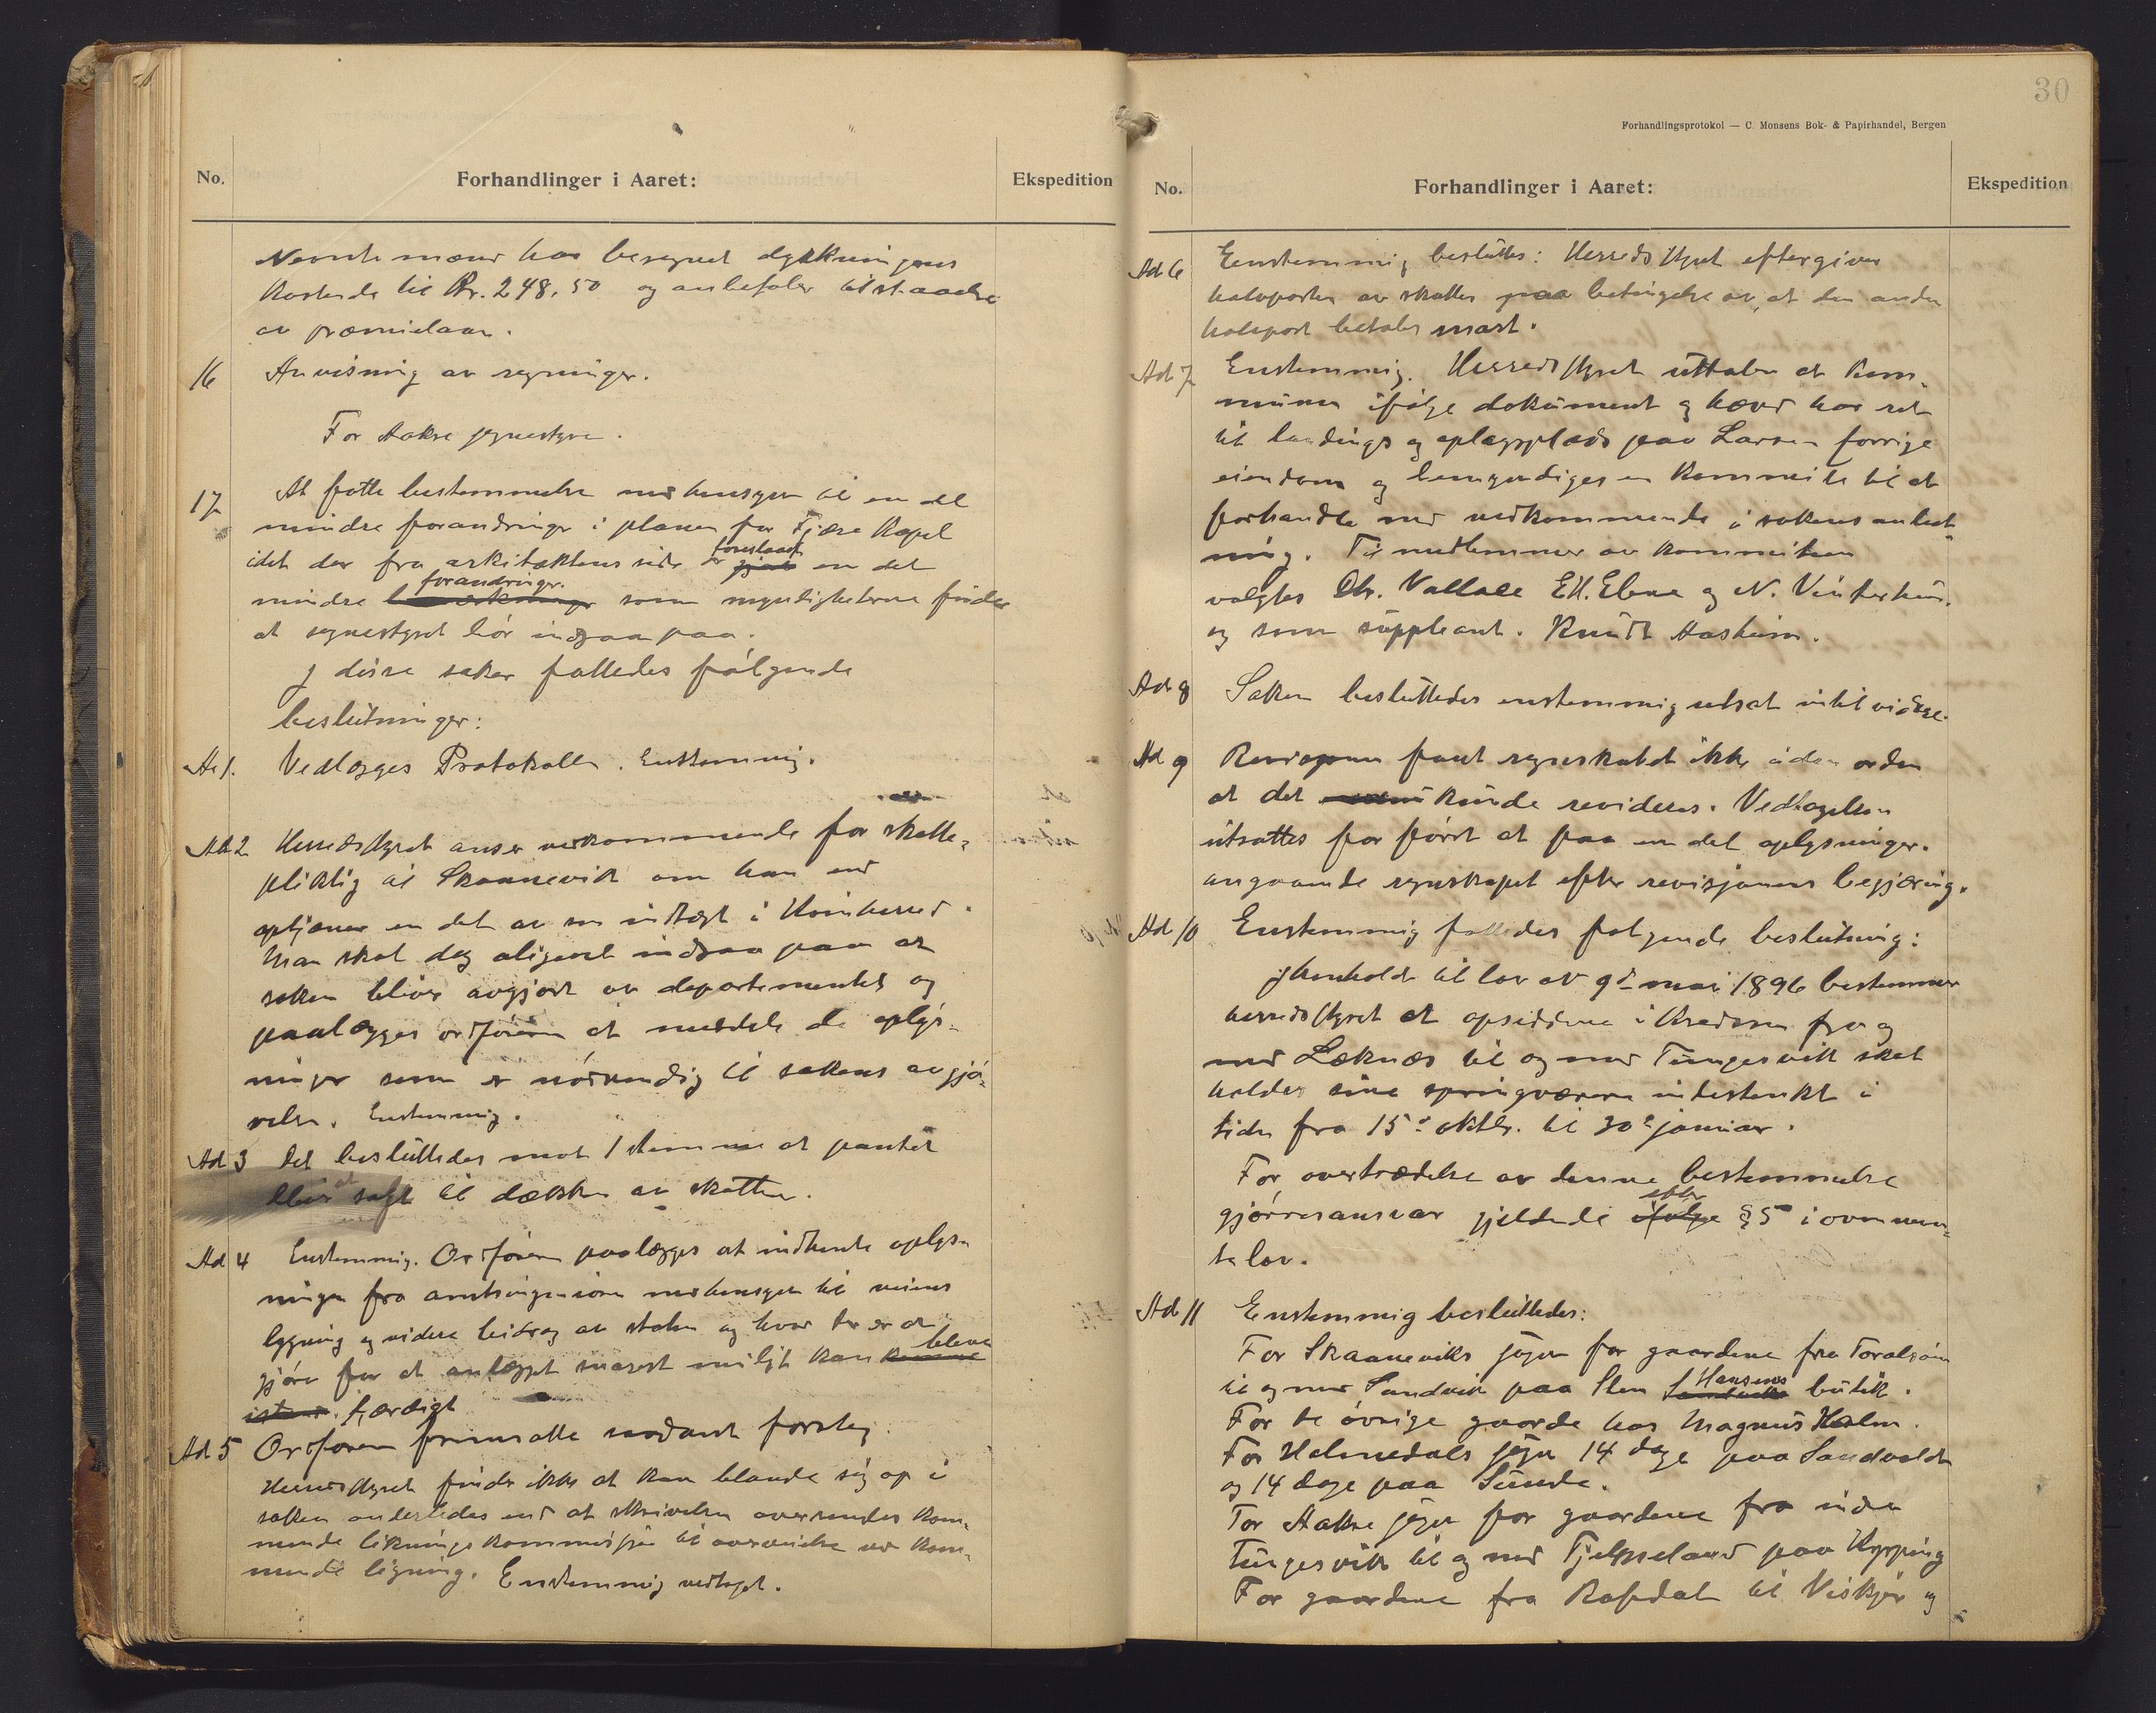 No.
Forhandlinger i Aaret:
Ekspedition
Nevnte mænd har beregnet dyrkningens
kostende til Kr. 248,50 og anbefaler tilstaaelse
av præmielaan.
16 Anvisning av regninger.
For Aakre sognestyre.
17 At fatte bestemmelse med hensyn til en del
mindre forandringer i planen for Fjære Kapel
idet der fra arkitektens side er foreslaat en del
mindre forandringer som myndigheterne finder
at sognestyret bör indgaa paa.
I disse saker fattedes fölgende
beslutninger:
Ad 1. Vedlægges Protokollen. Enstemmig.
Ad 2 Herredsstyret anser vedkommende for skatte-
pliktig til Skaanevik om han end
optjener en del av sin indtægt i Kvinherred.
Man skal dog aligevel indgaa paa at
saken bliver avgjort av departementet og
paalægges ordföreren at meddele de oplys-
ninger som er nödvendig til sakens avgjö-
relse. Enstemmig.
Ad 3 Det besluttedes mot 1 stemme at pantet
blir at solgt til dækken av skatten.
Ad 4 Enstemmig. Ordföreren paalægges at indhente oplys-
ninger fra amtsingeniören med hensyn til veiens
bygning og videre bidrag av staten og hvad der er at
gjöre for at anlægget snarest muligt kan bleve
færdigt
Ad 5 Ordföreren fremsatte saadant forslag:
Herredsstyret finder ikke at kan blande sig op i
saken anderledes end at skrivelsen oversendes kom-
mende likningskommisjon til overveielse ved kom-
mende ligning. Enstemmig vedtaget.
30
Forhandlingsprotokol — C. Monsens Bok- & Papirhandel, Bergen
No.
Forhandlinger i Aaret:
Ekspedition
Ad 6 Eenstemmig besluttes: Herredsstyret eftergiver
halvparten av skatten paa betingelse av, at den anden
halvpart betales snart.
Ad 7 Enstemmig. Herredsstyret uttaler at kom-
munen ifølge dokument og hævd har ret
til landings og oplagsplads paa Larsen forrige
eiendom og bemyndiges en kommite til at
forhandle med vedkommende i sakens anled-
ning. Til medlemmer av kommiteen
valgtes Chr. Vallale E.H. Ebne og N. Vinterhun.
og som suppleant. Knudt Aasheim.
Ad 8 Saken besluttedes enstemmig utsat intil videre.
Ad 9 Revisionen fant regnskabet ikke i den orden
at det kunde revideres. Vedtagelsen
utsattes for först at faa en del oplysninger.
angaaende regnskapet efter revisjonens begjæring.
Ad 10 Enstemmig fattedes følgende beslutning:
I henhold til lov av 9de mai 1896 bestemmer
herredsstyret at opsidderne i kredsen fra og
med Læknæs til og med Tungesvik skal
holder sine springværere indestenkt i
tiden fra 15de oktbr. til 30te januar.
For overtrædelse av denne bestemmelse
gjörres ansvar gjeldende efter § 5 i ovennevn-
te lov.
Ad 11 Enstemmig besluttedes:
For Skaaneviks sogn for gaardene fra Toralsön
til og med Sandvik paa Sten Hansens butik.
For de övrige gaarde hos Magnus Halm.
For Holmedals sogn 14 dage paa Sandvoldt
og 14 dage paa Sunde.
For Aakre sogn for gaardene fra inder
Tungesvik til og med Fjelgseland paa Kypping
For gaardene fra Rafsdal til Viskjer og